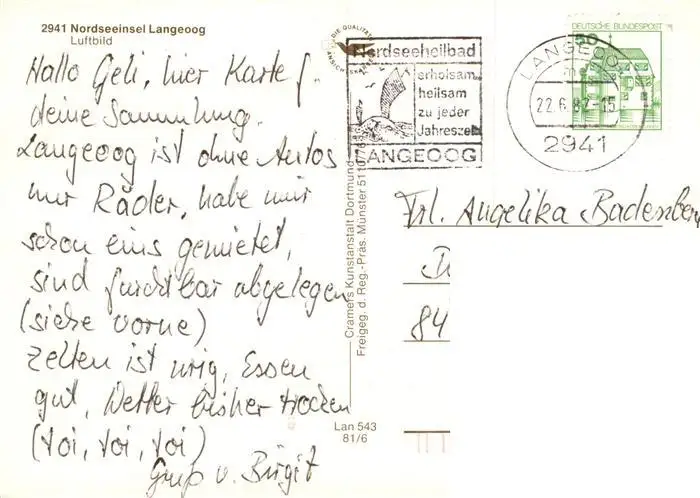 2941 Nordseeinsel Langeoog
Luftbild
Hallo Geli, hier Karte f.
deine Sammlung.
Langeoog ist ohne Autos
nur Räder, habe mir
schon eins gemietet,
sind furchtbar abgelegen
(siehe vorne)
Zelten ist urig, Essen
gut, Wetter bisher trocken
(toi, toi, toi)
Gruß v. Birgit
DIE QUALITÄTS
ANSICHTSKARTE
Nordseeheilbad
erholsam
heilsam
zu jeder
Jahreszeit
LANGEOOG
DEUTSCHE BUNDESPOST
50
LANGEOOG
22.6.82-15
2941
Cramers Kunstanstalt Dortmund
Freigeg. d. Reg.-Präs. Münster
Lan 543
81/6
Frl. Angelika Badenberg
84